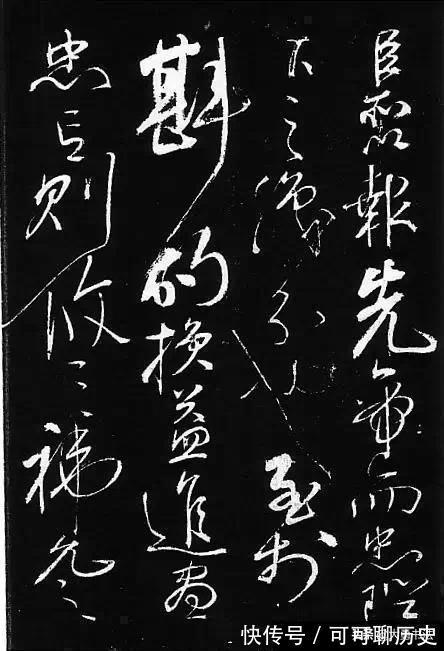 臣所以報先帝而忠陛
下之職分也至於
斟酌損益進盡
忠言則攸之禕允之
快传号 / 可可聊历史